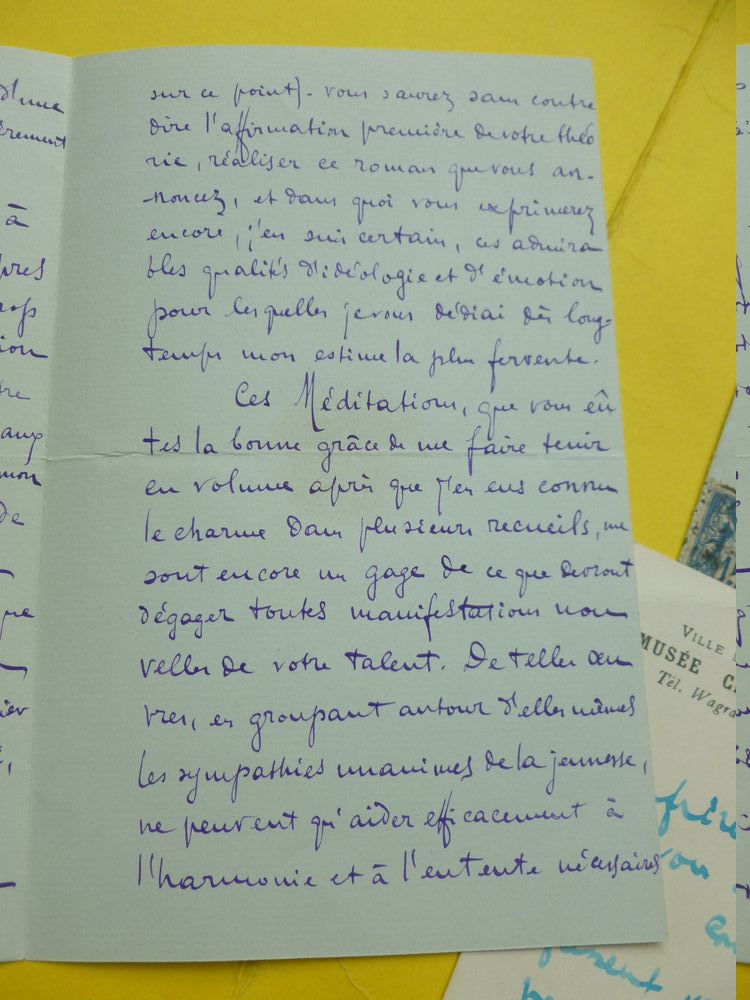 d'une
à
de
sur ce point) - vous saurez sans contre
dire l'affirmation première de votre théo
rie, réaliser ce roman que vous an-
-noncez, et dans quoi vous exprimerez
encore, j'en suis certain, ces admira
bles qualités d'idéologie et d'émotion
pour lesquelles je vous dédiai dès long-
temps mon estime la plus fervente.
Ces Méditations, que vous eû
tes la bonne grâce de me faire tenir
en volume après que j'en eus connu
le charme dans plusieurs recueils, me
sont encore un gage de ce que devront
dégager toutes manifestations nou
velles de votre talent. De telles œu
vres, en groupant autour d'elles mêmes
les sympathies unanimes de la jeunesse,
ne peuvent qu'aider efficacement à
l'harmonie et à l'entente nécessaires
VILLE
MUSÉE
Tél. Wagra